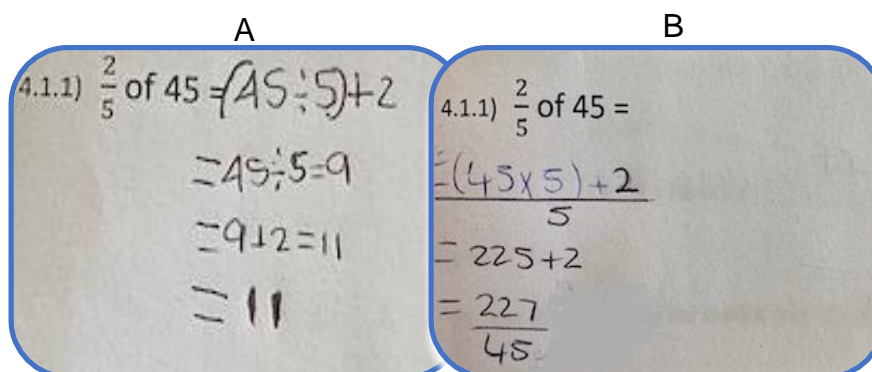 A
4.1.1) 2/5 of 45 = (45÷5)+2
=45÷5=9
=9+2=11
= 11
B
4.1.1) 2/5 of 45 =
=(45×5)+2
5
= 225+2
= 227
45